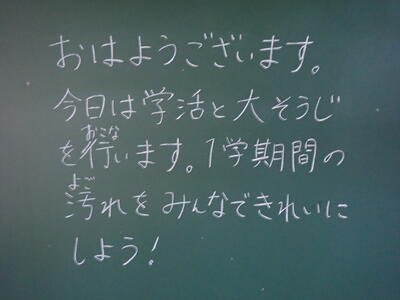 おはようございます。
今日は学活と大そうじ
を行います。1学期間の
汚れをみんなできれいに
しよう!
おこな
よご